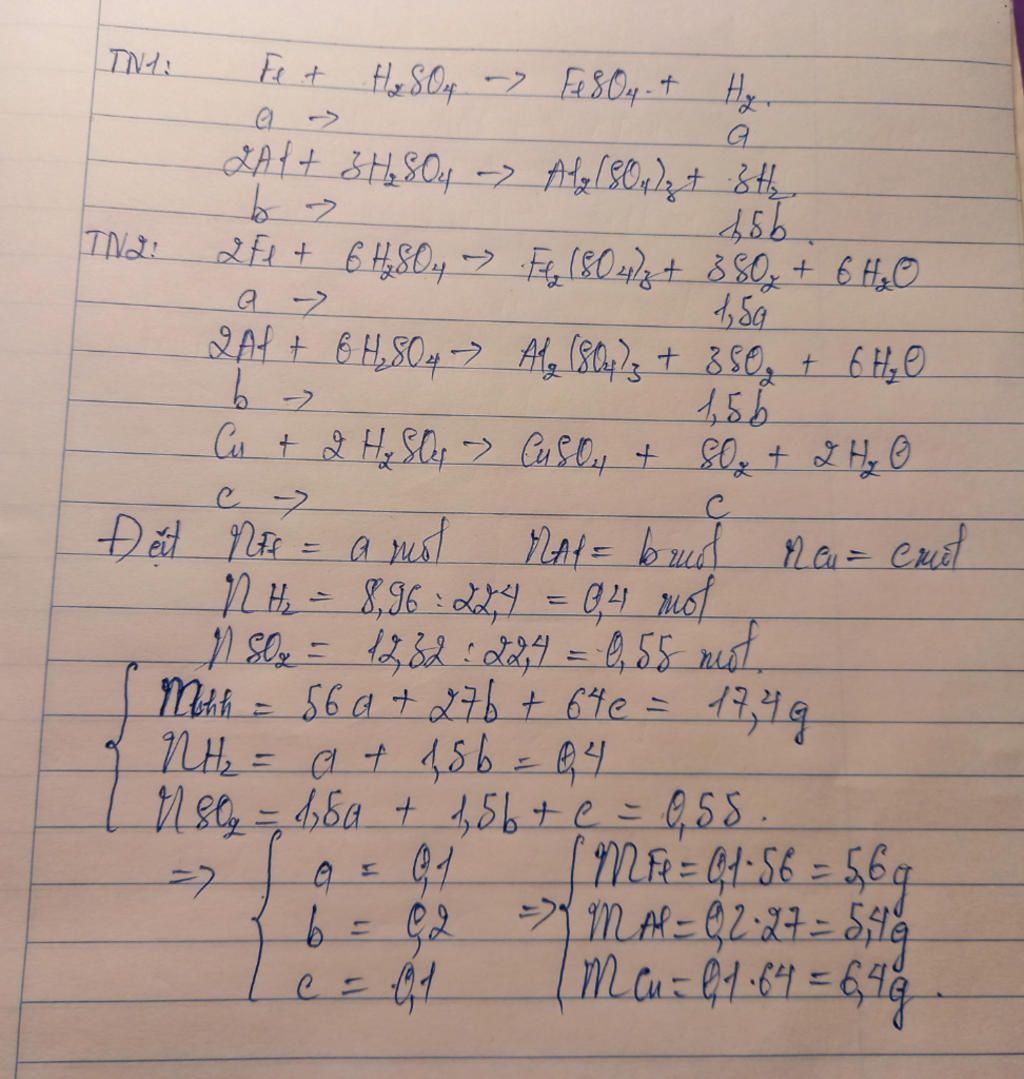 TN1: Fe + H₂SO₄ → FeSO₄ + H₂.
a → a
2Al + 3H₂SO₄ → Al₂(SO₄)₃ + 3H₂.
b → 1,5b.
TN2: 2Fe + 6H₂SO₄ → Fe₂(SO₄)₃ + 3SO₂ + 6H₂O
a → 1,5a
2Al + 6H₂SO₄ → Al₂(SO₄)₃ + 3SO₂ + 6H₂O
b → 1,5b
Cu + 2H₂SO₄ → CuSO₄ + SO₂ + 2H₂O
c → c
Đặt nFe = a mol nAl = b mol nCu = c mol
nH₂ = 8,96 : 22,4 = 0,4 mol
nSO₂ = 12,32 : 22,4 = 0,55 mol.
mhh = 56a + 27b + 64c = 17,4g
nH₂ = a + 1,5b = 0,4
nSO₂ = 1,5a + 1,5b + c = 0,55.
=> { a = 0,1 => { mFe = 0,1.56 = 5,6g
b = 0,2 mAl = 0,2.27 = 5,4g
c = 0,1 mCu = 0,1.64 = 6,4g.